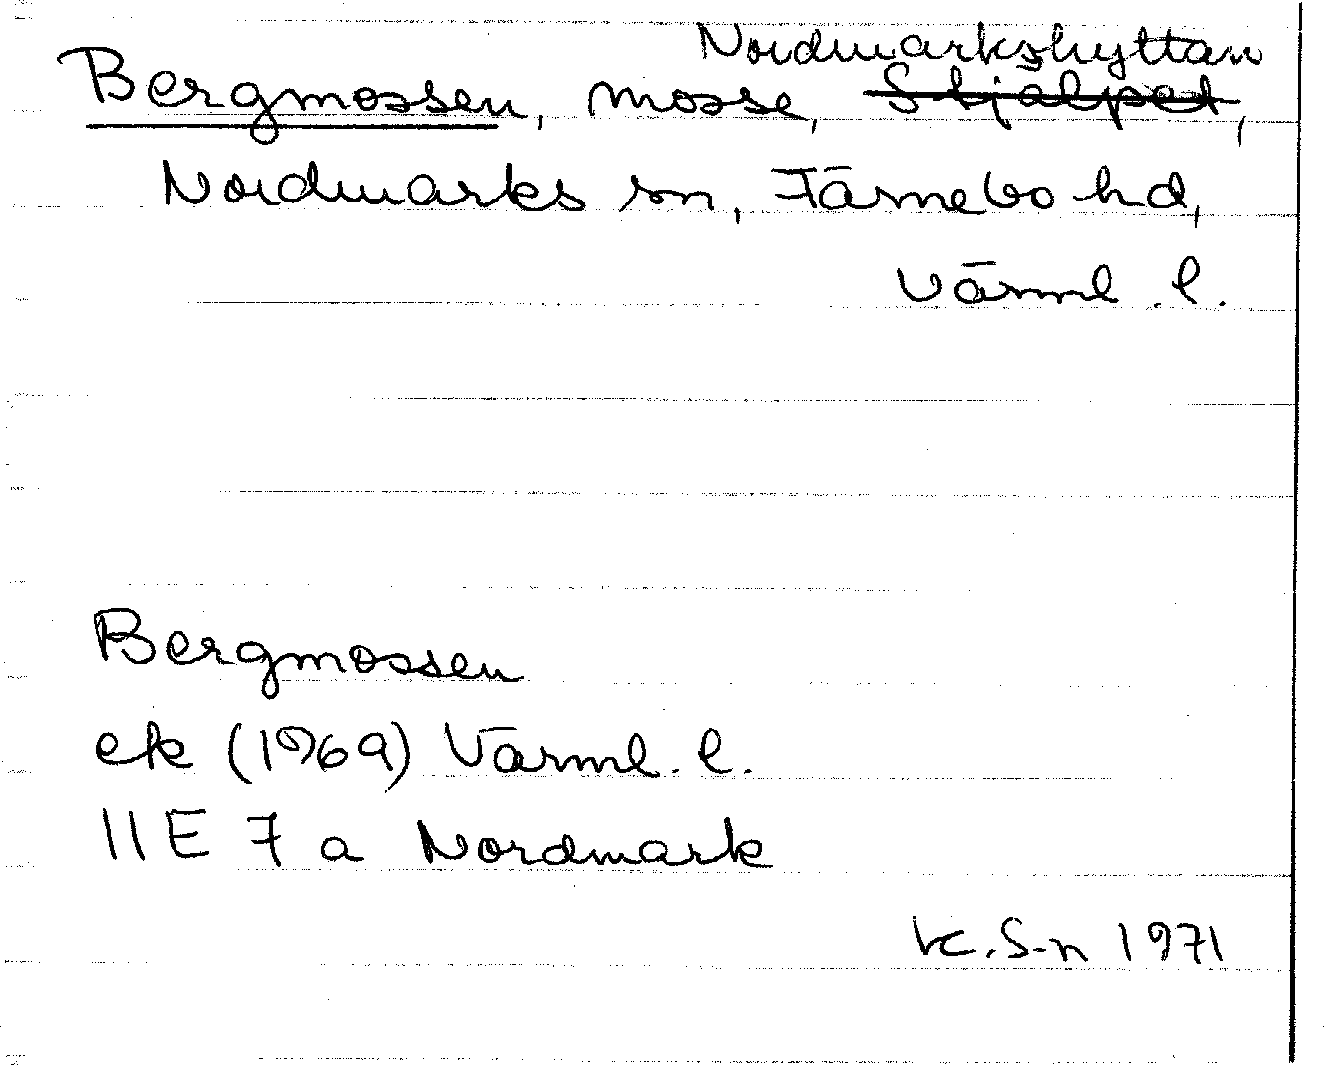 Nordmarkshyttan
Bergmossen, mosse, Stjälpet,
Nordmarks sn, Färnebo hd,
Värml. l.
Bergmossen
ek (1969) Värml. l.
11E 7 a Nordmark
K. S-n 1971